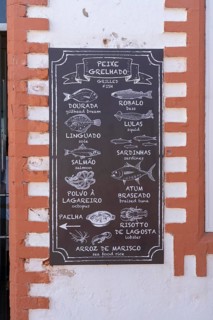 PEIXE
GRELHADO
GRILLED
FISH
DOURADA
gilthead bream
ROBALO
bass
LULAS
squid
LINGUADO
sole
SARDINHAS
sardines
SALMÃO
salmon
POLVO À
LAGAREIRO
octopus
ATUM
BRASEADO
braised tuna
PAELHA
RISOTTO
DE LAGOSTA
lobster
ARROZ DE MARISCO
sea food rice